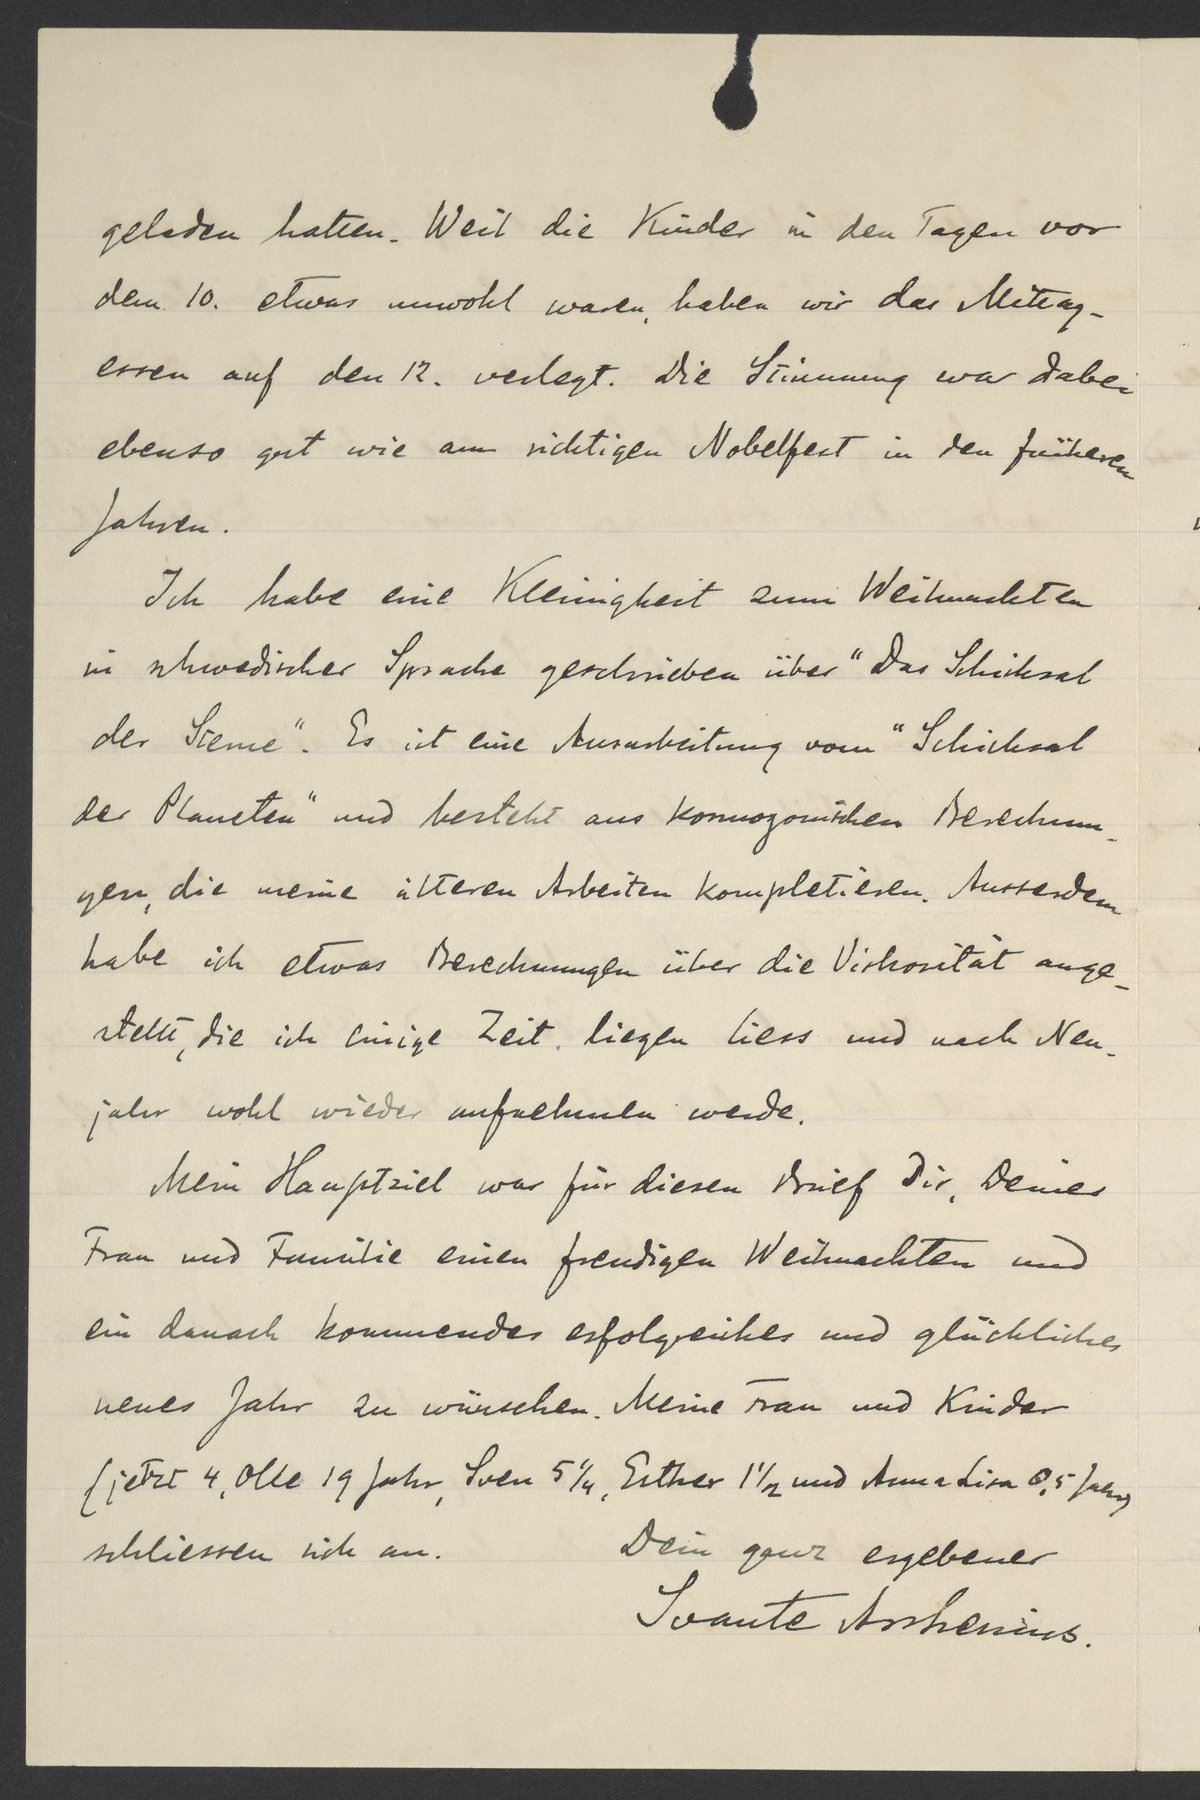 geladen hatten. Weil die Kinder in den Tagen vor
dem 10. etwas unwohl waren, haben wir das Mittag-
essen auf den 12. verlegt. Die Stimmung war dabei
ebenso gut wie am richtigen Nobelfest in den früheren
Jahren.
Ich habe eine Kleinigkeit zum Weihnachten
in schwedischer Sprache geschrieben über "Das Schicksal
der Sterne". Es ist eine Ausarbeitung vom "Schicksal
der Planeten" und besteht aus kosmogonischen Berechnun-
gen, die meine älteren Arbeiten kompletieren. Ausserdem
habe ich etwas Berechnungen über die Viskosität ange-
stellt, die ich einige Zeit liegen liess und nach Neu-
jahr wohl wieder aufnehmen werde.
Mein Hauptziel war für diesen Brief Dir, Deiner
Frau und Familie einen freudigen Weihnachten und
ein danach kommendes erfolgreiches und glückliches
neues Jahr zu wünschen. Meine Frau und Kinder
(jetzt 4, Olle 19 Jahr, Sven 5 1/4, Esther 1 1/2 und Anna Lisa 0,5 Jahr)
schliessen sich an. Dein ganz ergebener
Svante Arrhenius.